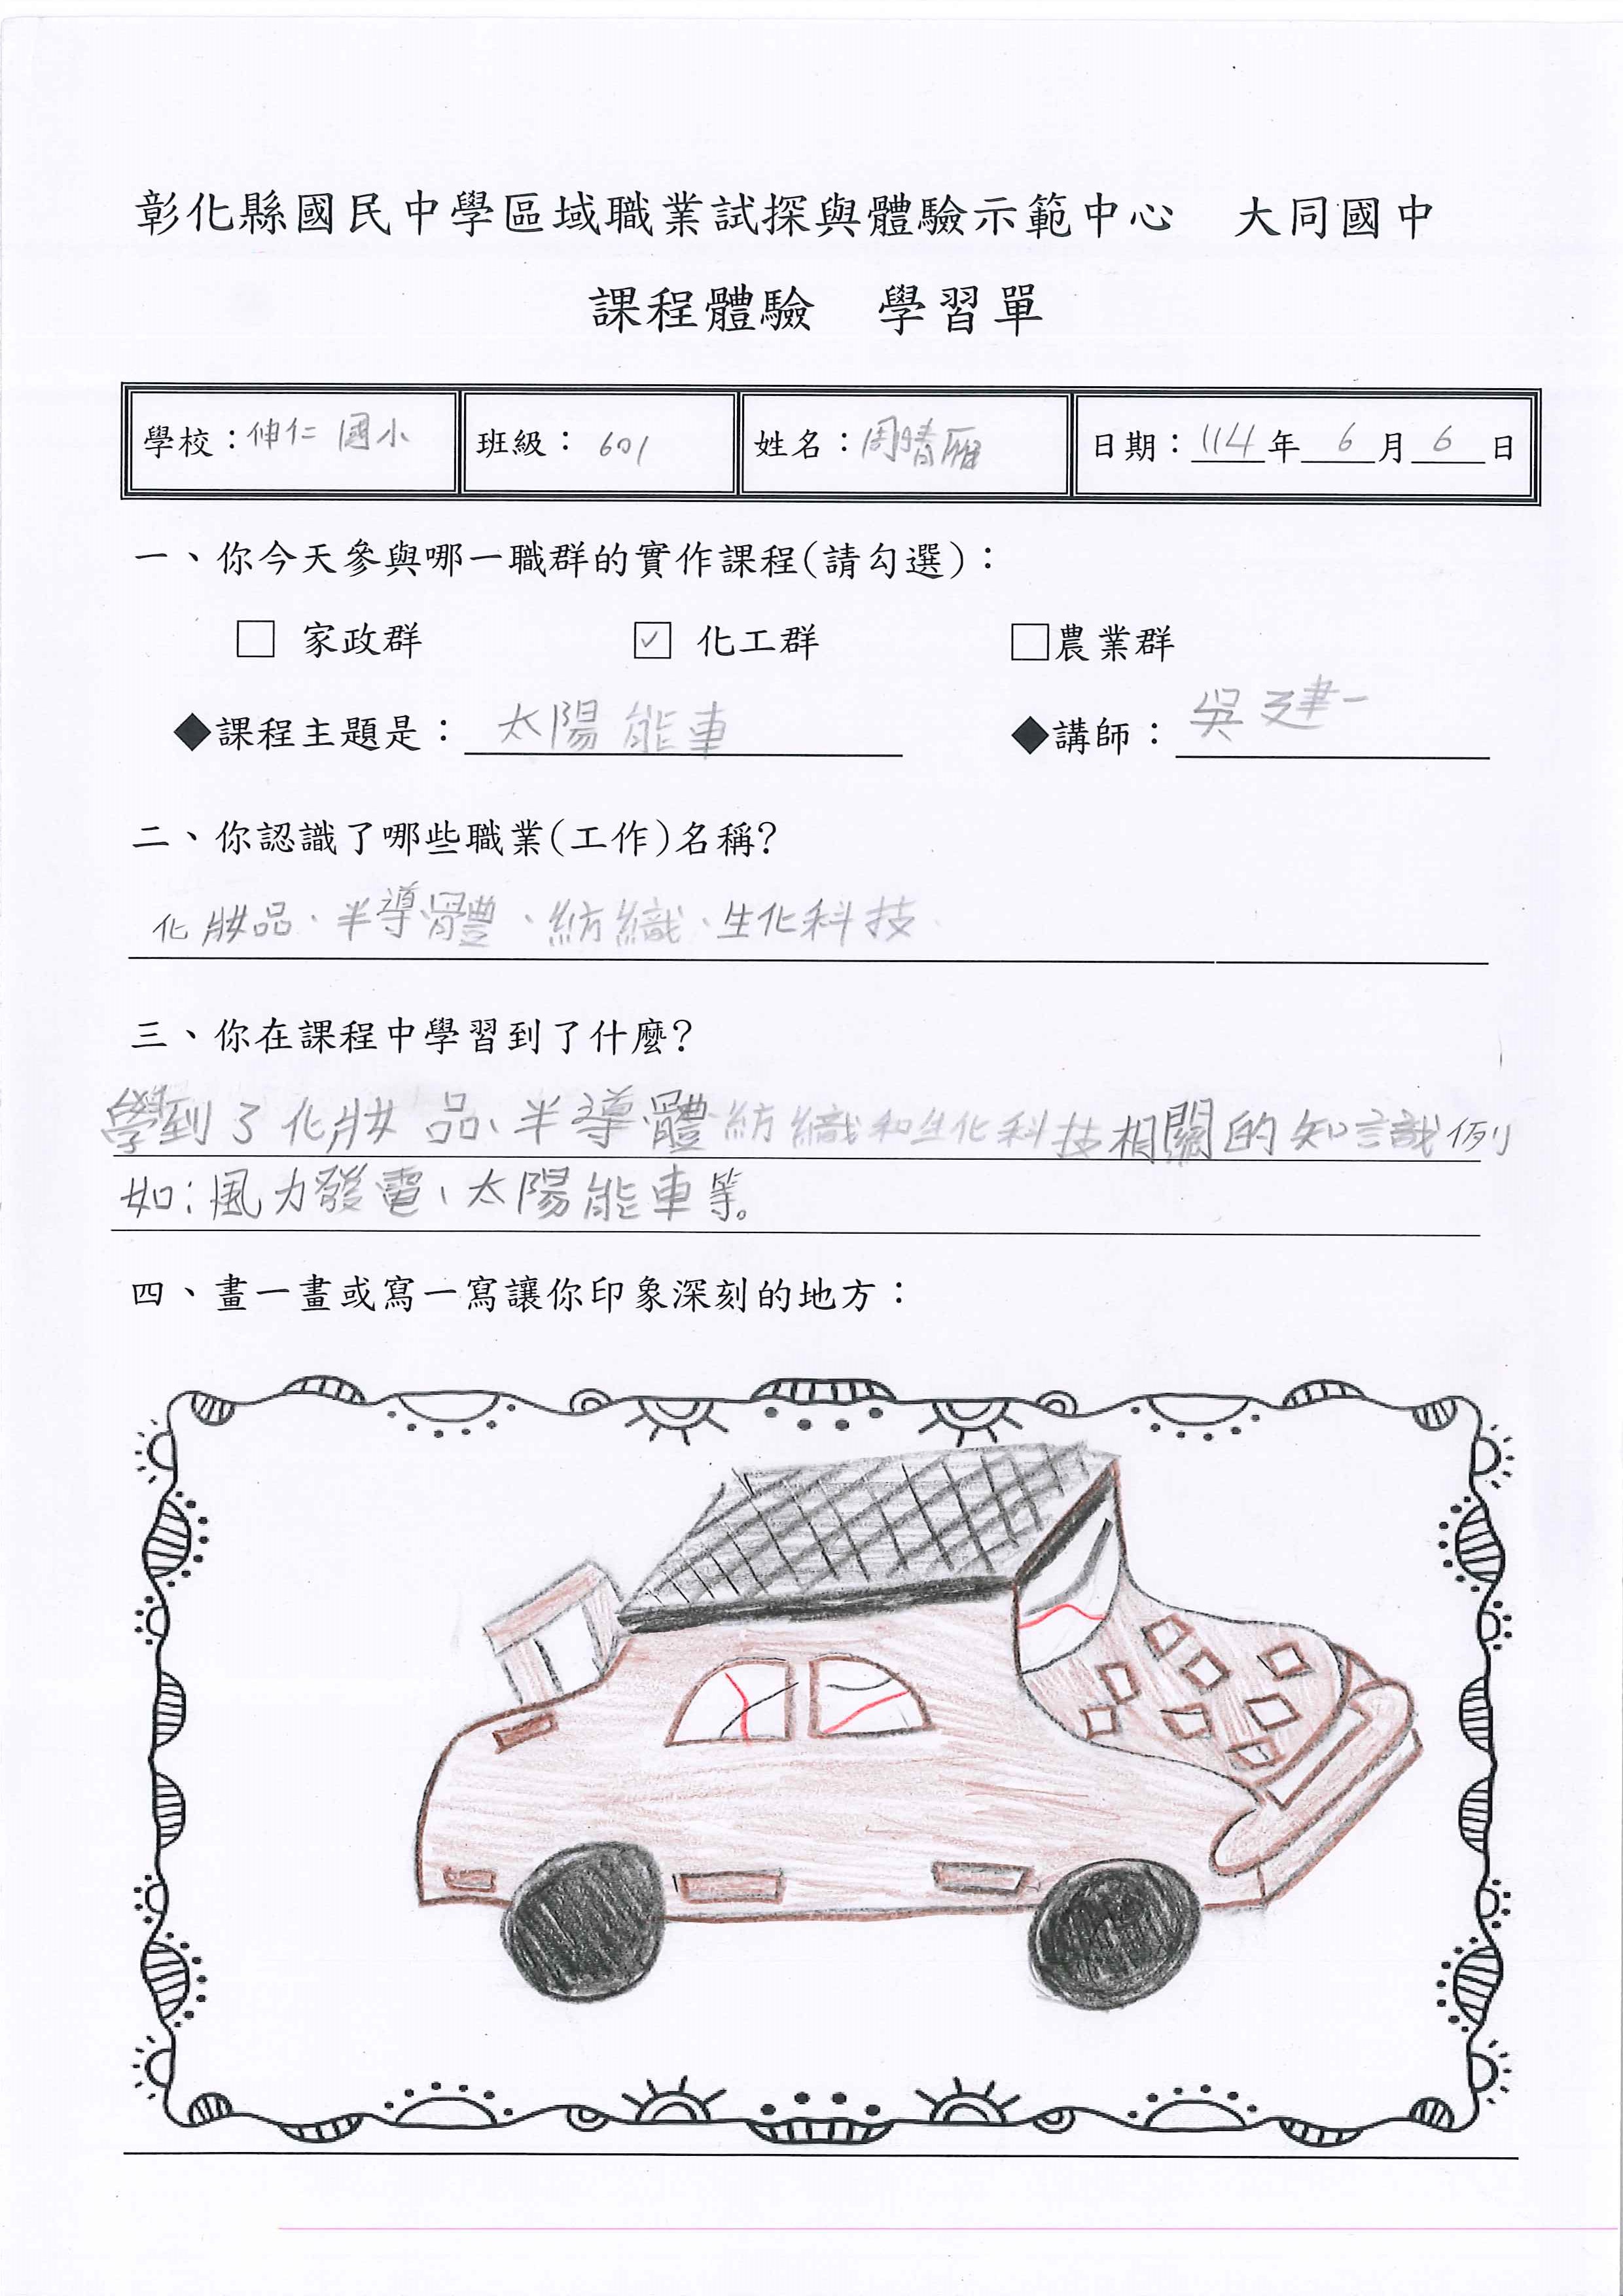 彰化縣國民中學區域職業試探與體驗示範中心　大同國中
課程體驗　學習單
學校：伸仁國小 班級：601 姓名：周晴雁 日期：114年6月6日
一、你今天參與哪一職群的實作課程(請勾選)：
□ 家政群 ☑ 化工群 □農業群
◆課程主題是：太陽能車 ◆講師：吳建一
二、你認識了哪些職業(工作)名稱?
化妝品、半導體、紡織、生化科技
三、你在課程中學習到了什麼?
學到了化妝品、半導體紡織和生化科技相關的知識例
如:風力發電、太陽能車等。
四、畫一畫或寫一寫讓你印象深刻的地方：